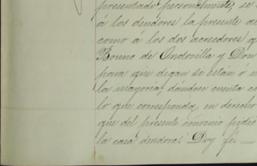 presentado personalmente, se
á los deudores la presente de
como á los dos acreedores q
Bonno de Andonilla y Don
para que digan se estan o n
la mayoria, dandon cuenta c
lo que corresponda, en derecho
que del presente convenio pudie
la casa deudora. Doy fé.